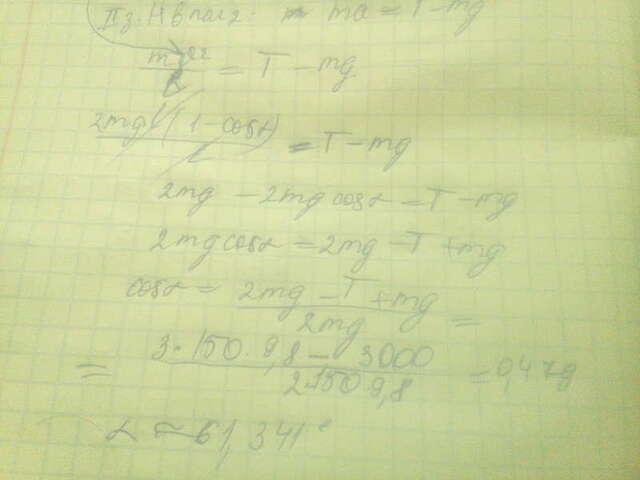 II з. Н в пол 2: ma = T - mg
mv² / l = T - mg
2mgl(1-cosα) / l = T - mg
2mg - 2mg cosα = T - mg
2mg cosα = 2mg - T + mg
cosα = 2mg - T + mg / 2mg =
= 3·150·9,8 - 3000 / 2·150·9,8 = 0,479
α ≈ 61,341°